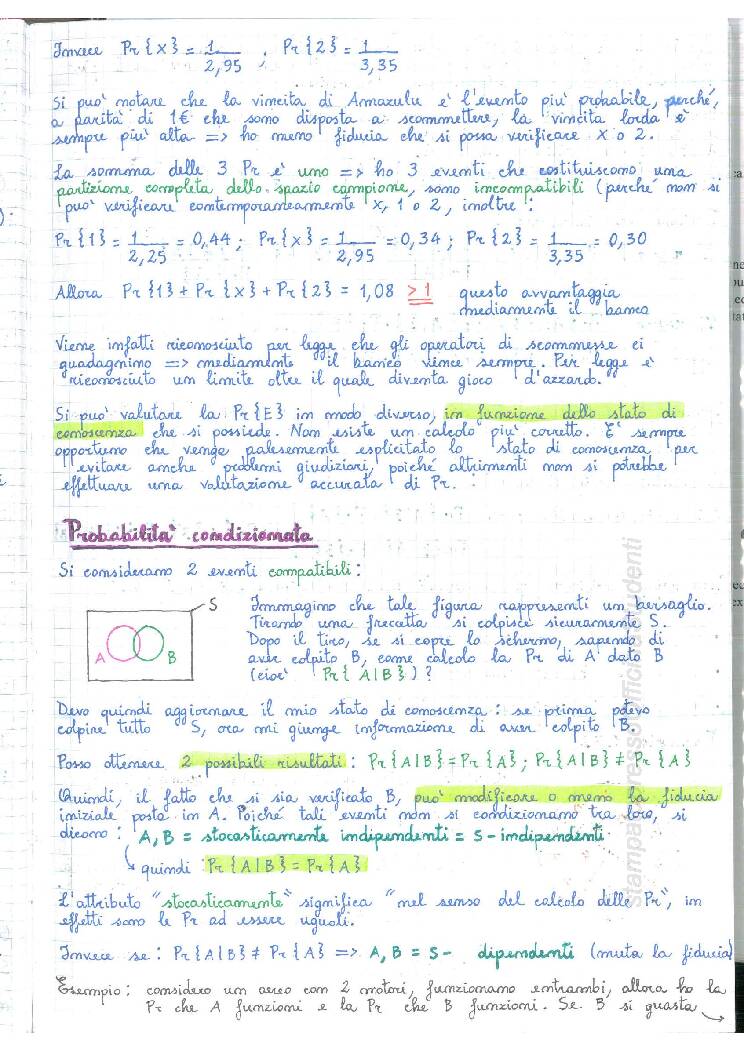 Invece Pr{x} = 1/2,95 ; Pr{2} = 1/3,35
Si puo' notare che la vincita di Amazulu e' l'evento piu' probabile, perché,
a parita' di 1€ che sono disposta a scommettere, la vincita lorda e'
sempre piu' alta => ho meno fiducia che si possa verificare x o 2.
La somma delle 3 Pr e' uno => ho 3 eventi che costituiscono una
partizione completa dello spazio campione, sono incompatibili (perche' non si
puo' verificare contemporaneamente x, 1 o 2, inoltre :
Pr{1} = 1/2,25 = 0,44 ; Pr{x} = 1/2,95 = 0,34 ; Pr{2} = 1/3,35 = 0,30
Allora Pr{1} + Pr{x} + Pr{2} = 1,08 > 1 questo avvantaggia
mediamente il banco
Viene infatti riconosciuto per legge che gli operatori di scommesse ci
guadagnino => mediamente il banco vince sempre. Per legge e'
riconosciuto un limite oltre il quale diventa gioco d'azzardo.
Si puo' valutare la Pr{E} in modo diverso, in funzione dello stato di
conoscenza che si possiede. Non esiste un calcolo piu' corretto. E' sempre
opportuno che venga palesemente esplicitato lo stato di conoscenza per
evitare anche problemi giudiziari, poiché altrimenti non si potrebbe
effettuare una valutazione accurata di Pr.
Probabilita' condizionata
Si considerano 2 eventi compatibili :
S
A B
Immagino che tale figura rappresenti un bersaglio.
Tirando una freccetta si colpisce sicuramente S.
Dopo il tiro, se si copre lo schermo, sapendo di
aver colpito B, come calcolo la Pr di A dato B
(cioe' Pr{A|B}) ?
Devo quindi aggiornare il mio stato di conoscenza : se prima potevo
colpire tutto S, ora mi giunge informazione di aver colpito B.
Posso ottenere 2 possibili risultati : Pr{A|B} = Pr{A} ; Pr{A|B} ≠ Pr{A}
Quindi, il fatto che si sia verificato B, puo' modificare o meno la fiducia
iniziale posta in A. Poiché tali eventi non si condizionano tra loro, si
dicono : A, B = stocasticamente indipendenti = s-indipendenti
quindi : Pr{A|B} = Pr{A}
L'attributo "stocasticamente" significa "nel senso del calcolo delle Pr", in
effetti sono le Pr ad essere uguali.
Invece se : Pr{A|B} ≠ Pr{A} => A, B = S- dipendenti (muta la fiducia)
Esempio : considero un aereo con 2 motori, funzionano entrambi, allora ho la
Pr che A funzioni e la Pr che B funzioni. Se B si guasta
stampato presso